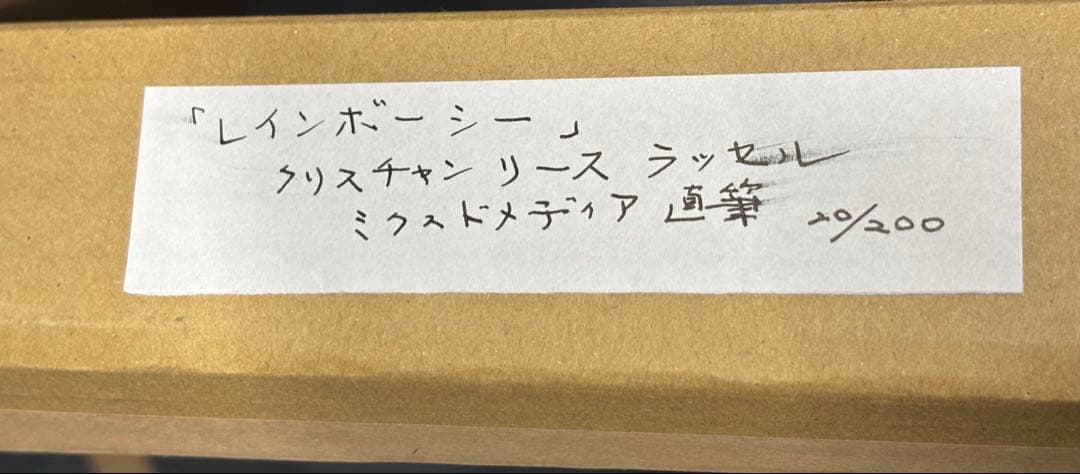 「レインボーシー」
クリスチャン リース ラッセル
ミクスドメディア 直筆 20/200